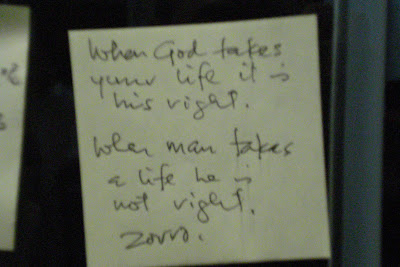 When God takes
your life it is
his right.
When man takes
a life he is
not right.
Zorro.